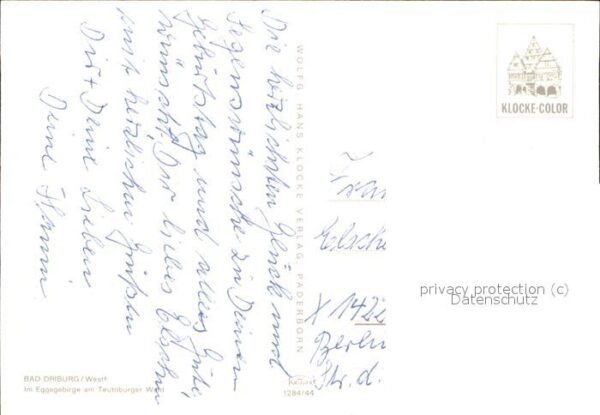 Die herzlichsten Glück und
Segenswünsche zu Deinem
Geburtstag und alles Gute,
wünscht Dir liebes Elschen
mit herzlichen Grüßen
Dir + Deine Lieben
Deine
WOLFG. HANS KLOCKE VERLAG, PADERBORN
KLOCKE-COLOR
Frau
Elsche
X 1422
Berlin
Str. d.
privacy protection (c)
Datenschutz
BAD DRIBURG/Westf.
Im Eggegebirge am Teutoburger Wald
1284/44